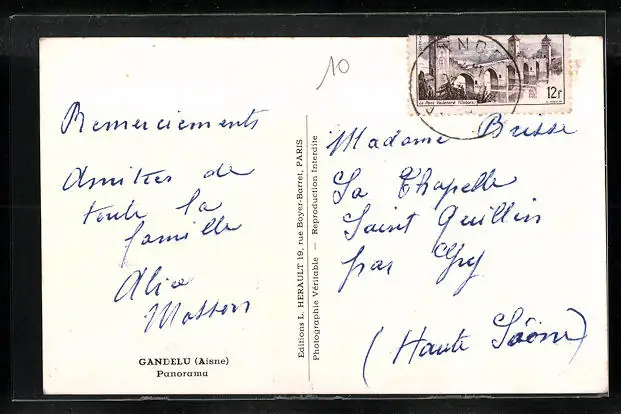 10
Remerciements
Amitiés de
toute la
famille
Alia
Masson
GANDELU (Aisne)
Panorama
Editions L. HERAULT 19, rue Boyer-Barret, PARIS
Photographie Véritable — Reproduction Interdite
12F
Le Pont Valentré (Cahors)
Madame Brisse
La Chapelle
Saint Quillin
par Gy
(Haute Saône)